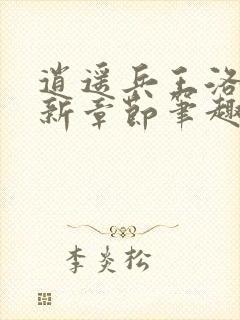 逍遥兵王洛
新章节笔趣
李炎松